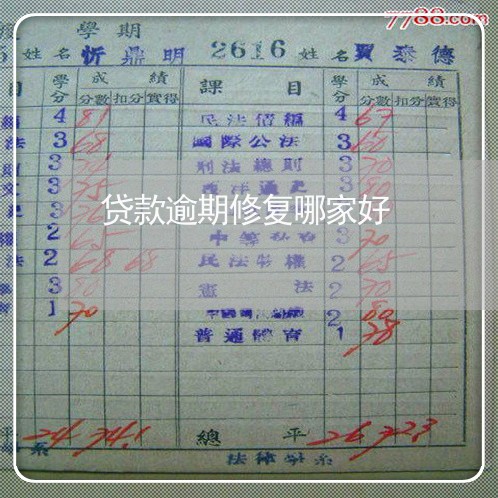 7788.com
學期
姓名 忻鼎明 2616 姓名 賈泰德
目 學分 成績 課目 學分 成績
分數 扣分 實得 分數 扣分 實得
4 81 民法債編 4 67
法 3 68 國際公法 3 60
3 刑法總則 3 70
3 75 西洋通史 3 80
3
貸款逾期修复哪家好
2 65 3 70
法 2 68 68 民法物權 2 65
3 80 憲法 2 70
1 70 2 80
普通體育 1 78
平 24 74.1 總平 26 72.3
系 法律學系